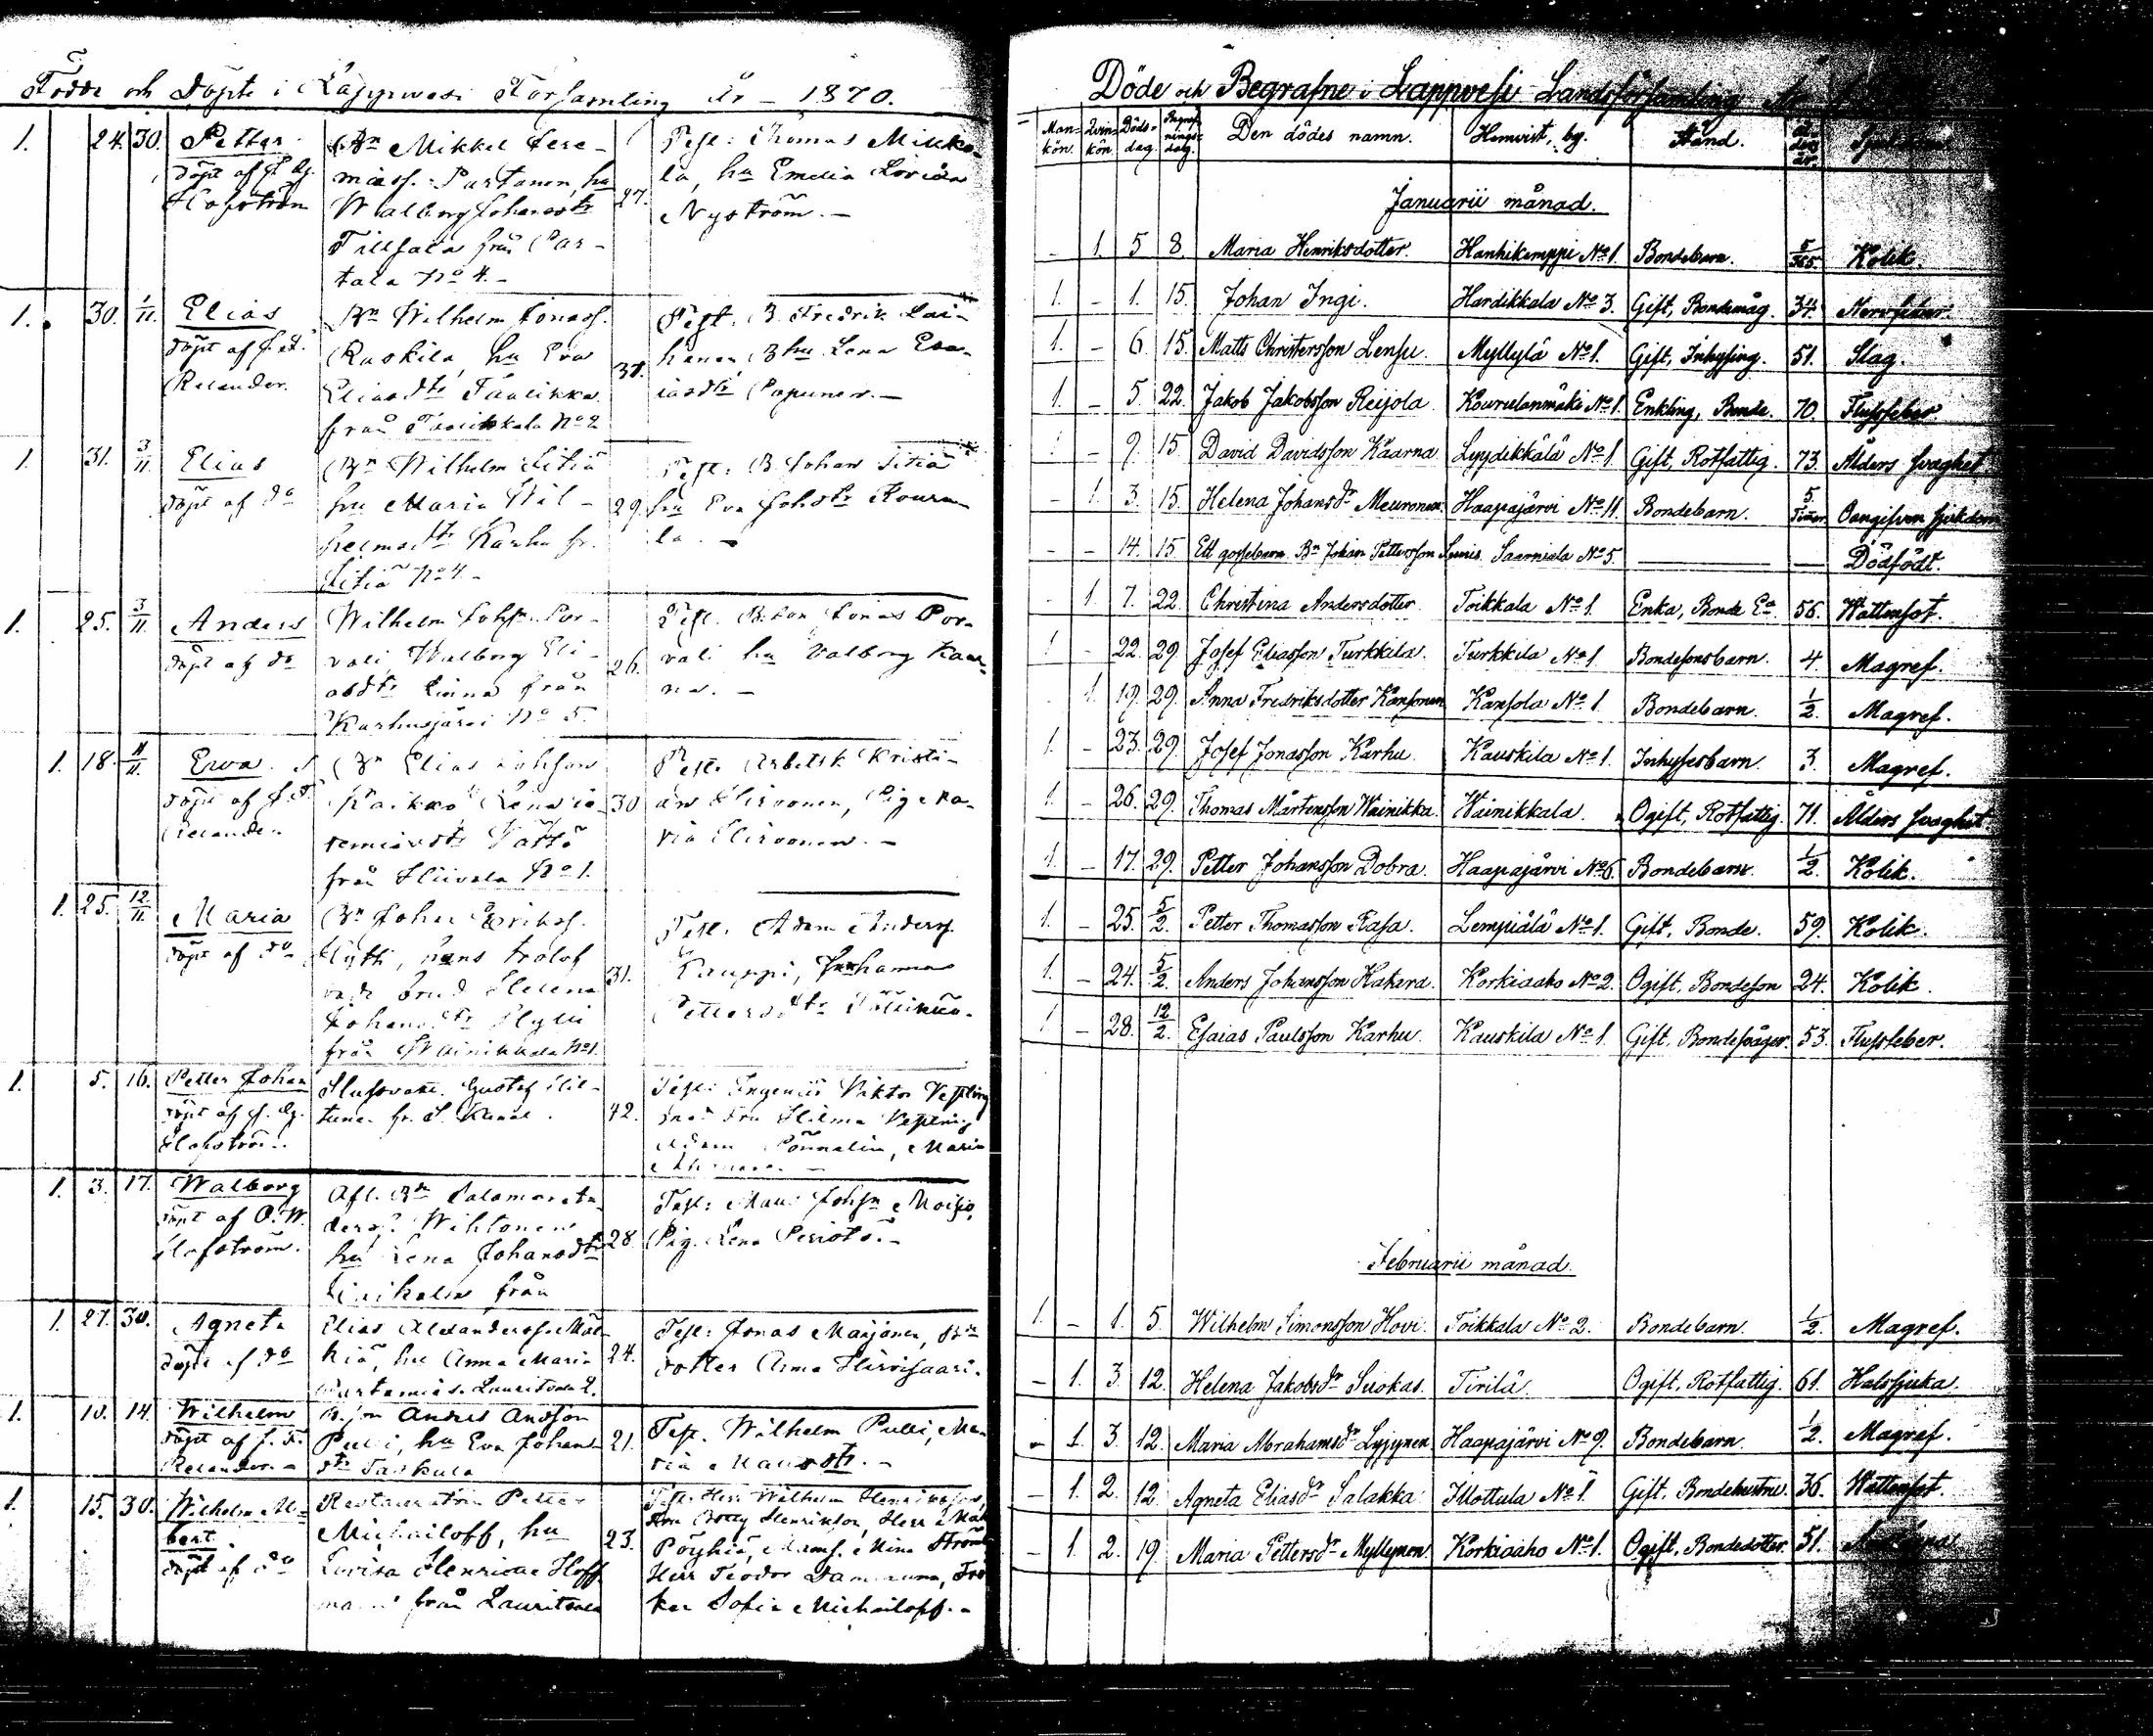 Födde och Döpte i Lappvesi Församling År - 1870.
1. 24. 30. Petter
döpt af
Hofström
Bn Mikkel Jere-
miass. Partanen, hu
Walborg Johansdtr
från Par-
tala No 4.-
27.
Test: Thomas Mikko-
la, hu Emelia Lovisa
Nyström.-
1. 30. 1/11. Elias
döpt af
Relander.
Bn Wilhelm Jonass.
Raskila, hu Eva
Eliasdtr
från No 2
31.
Test: B. Fredrik Lai-
hanen, B hu Lena Esa-
iasdtr Papunen.-
1. 31. 3/11. Elias
döpt af do
Bn Wilhelm Sitiä
hu Maria Wil-
helmsdtr Karhu fr.
Sitiä No 4.-
29.
Test: B. Johan Sitiä
hu Eva Johsdtr Koura-
la.-
1. 25. 3/11. Anders
döpt af do
Wilhelm Johsn Por-
vali, Walborg Eli-
asdtr Linna från
Karhusjärvi No 5.
26.
Test. B.son Jonas Por-
vali hu Valborg Kaar-
na.-
1. 18. 4/11. Ewa
döpt af
Relander
Bn Elias Johsson
från No 1.
30
Test: Arbetsk Kristi-
an Hirvonen, Pig Ma-
ria Hirvonen.-
1. 25. 12/11. Maria
döpt af do
Bn Johan Erikss.
Hytti, hans trolof
vade brud Helena
Johansdtr Hytti
från Wainikkala No 1.
31.
Test: Adam Anderss.
Kauppi, Johanna
Pettersdtr
1. 5. 16. Petter Johan
döpt af
Hofström.
Slussvakt. Gustaf Hil-
tunen fr. S. Kanal.
42.
Test: Ingeniör Viktor Vesling
Fru Hilma Vesling
Adam Pönnelin, Maria
1. 3. 17. Walborg
döpt af O. W.
Hofström.
Afl. Bn Salamon An-
derss. Wihtonen
hu Lena Johansdtr
från
28
Test: Maur Johsn Moisio,
Pig. Lena
1. 27. 30. Agneta
döpt af do
Elias Alexanderss. Mäl-
kiä, hu Anna Maria
24.
Test: Jonas Marjanen, Bn
dotter Anna Hirvisaari.
1. 10. 14. Wilhelm
döpt af
Relander.-
B.son Anders Andsson
Pulli, hu Eva Johans-
dtr Taskula
21.
Test. Wilhelm Pulli, Ma-
ria Mausdtr.-
1. 15. 30. Wilhelm Al-
bert.
döpt af do
Restauratören Petter
Michailoff, hu
Lovisa Henrica Hoff-
mann från Lauritsala
23.
Test: Herr Wilhelm Henriksson,
Fru Betty Henrikson, Herr
Pöyhiä, Mams. Mina
Herr Teodor
ken Sofia Michailoff.-
Döde och Begrafne i Lappvesi Landsförsamling År
Man-kön. Qvin-kön Döds-dag. Begraf-nings-dag. Den dödes namn. Hemvist, by. Stånd. Ål-ders år. Sjukdom
Januarii månad.
- 1. 5 8. Maria Henriksdotter. Hanhikemppi No 1. Bondebarn. 5/365. Kolik.
1. - 1. 15. Johan Ingi. Hardikkala No 3. Gift, Bondemåg. 34. Nervfeber.
1. - 6. 15. Matts Christersson Lensu. Myllylä No 1. Gift, Inhysing. 51. Slag.
1. - 5. 22. Jakob Jakobsson Reijola. Kourulanmäki No 1. Enkling, Bonde. 70. Flussfeber.
1 - 9. 15. David Davidsson Kaarna. Lyydikkälä No 1. Gift, Rotfattig. 73. Ålders svaghet
- 1. 3. 15. Helena Johansdr Meuronen. Haapajärvi No 11. Bondebarn. 5. Timar. Oangifven sjukdom
- - 14. 15. Ett gossebarn Bn Johan Pettersson Suni. Saarniala No 5. — — Dödfödt.
- 1. 7. 22. Christina Andersdotter. Toikkala No 1. Enka, Bonde Ea. 56. Wattensot.
1 - 22. 29 Josef Eliasson Turkkila. Turkkila No 1. Bondesonsbarn. 4. Magref.
1 19. 29. Anna Fredriksdotter Kansonen Kansola No 1. Bondebarn. 1/2. Magref.
1. - 23. 29. Josef Jonasson Karhu. Kauskila No 1. Inhysesbarn. 3. Magref.
1. - 26. 29. Thomas Mårtensson Wainikka. Wainikkala. Ogift, Rotfattig. 71. Ålders svaghet.
1. - 17. 29. Petter Johansson Dobra. Haapajärvi No 6. Bondebarn. 1/2. Kolik.
1. - 25. 5/2. Petter Thomasson Rasa. Lempiälä No 1. Gift, Bonde. 59. Kolik.
1. - 24. 5/2. Anders Johansson Kakara. Korkiaaho No 2. Ogift, Bondeson 24. Kolik.
1 - 28. 12/2. Esaias Paulsson Karhu. Kauskila No 1. Gift, Bondesvåger. 53. Flussfeber.
Februarii månad.
1. - 1. 5. Wilhelm Simonsson Hovi. Toikkala No 2. Bondebarn. 1/2. Magref.
- 1. 3. 12. Helena Jakobsdr Suokas. Tirilä. Ogift, Rotfattig. 61. Halssjuka.
- 1. 3. 12. Maria Abrahamsdr Lyijynen. Haapajärvi No 9. Bondebarn. 1/2. Magref.
- 1. 2. 12. Agneta Eliasdr Salakka. Illottula No 1. Gift, Bondehustru. 36. Wattensot.
- 1. 2. 19. Maria Pettersdr Myllynen. Korkiaaho No 1. Ogift, Bondedotter. 51.